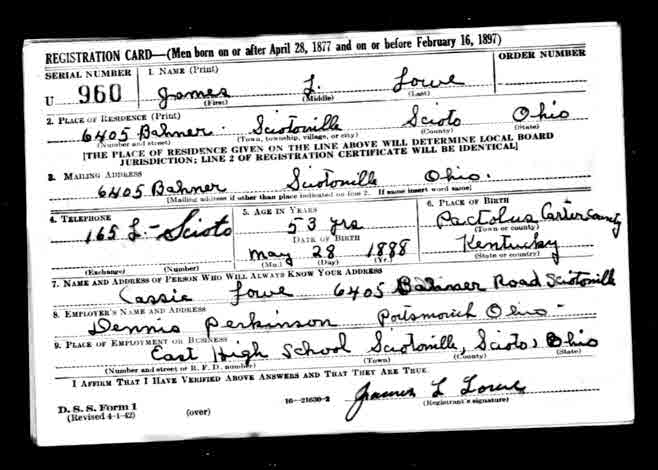 REGISTRATION CARD—(Men born on or after April 28, 1877 and on or before February 16, 1897)
SERIAL NUMBER 1. NAME (Print) ORDER NUMBER
U 960 James L. Lowe
(First) (Middle) (Last)
2. PLACE OF RESIDENCE (Print)
6405 Bahner. Sciotoville Scioto Ohio
(Number and street) (Town, township, village, or city) (County) (State)
[THE PLACE OF RESIDENCE GIVEN ON THE LINE ABOVE WILL DETERMINE LOCAL BOARD
JURISDICTION; LINE 2 OF REGISTRATION CERTIFICATE WILL BE IDENTICAL]
3. MAILING ADDRESS
6405 Bahner Sciotoville Ohio.
[Mailing address if other than place indicated on line 2. If same insert word same]
4. TELEPHONE 5. AGE IN YEARS 6. PLACE OF BIRTH
165 L - Scioto 53 yrs Pactolus Carter County
DATE OF BIRTH (Town or county)
May 28 1888 Kentucky
(Exchange) (Number) (Mo.) (Day) (Yr.) (State or country)
7. NAME AND ADDRESS OF PERSON WHO WILL ALWAYS KNOW YOUR ADDRESS
Cassie Lowe 6405 Bahner Road Sciotoville
8. EMPLOYER'S NAME AND ADDRESS
Dennis Perkinson Portsmouth Ohio -
9. PLACE OF EMPLOYMENT OR BUSINESS
East High School Sciotoville, Scioto, Ohio
(Number and street or R. F. D. number) (Town) (County) (State)
I AFFIRM THAT I HAVE VERIFIED ABOVE ANSWERS AND THAT THEY ARE TRUE.
James L Lowe
D. S. S. Form 1 16—21630-2 (Registrant's signature)
(Revised 4-1-42) (over)